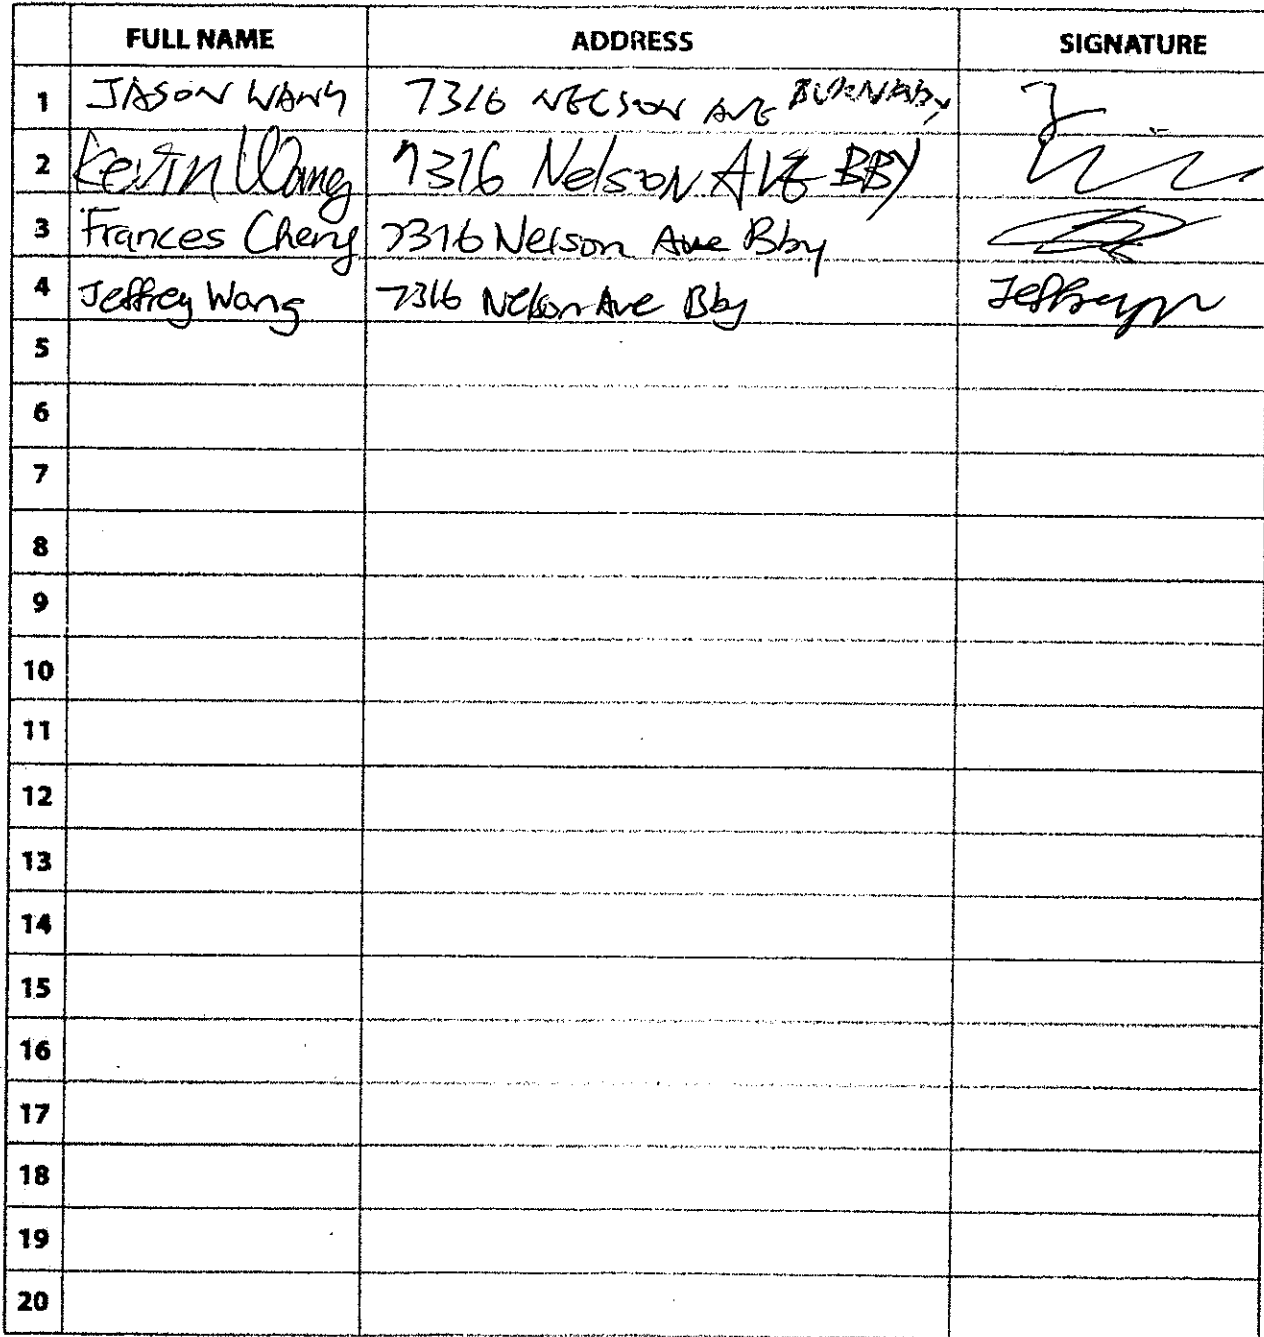 FULL NAME ADDRESS SIGNATURE
1 JASON WANG 7316 NELSON AVE BURNABY
2 Kevin Wang 7316 Nelson AVE BBY
3 Frances Cheng 7316 Nelson Ave Bby
4 Jeffrey Wang 7316 Nelson Ave Bby
5
6
7
8
9
10
11
12
13
14
15
16
17
18
19
20